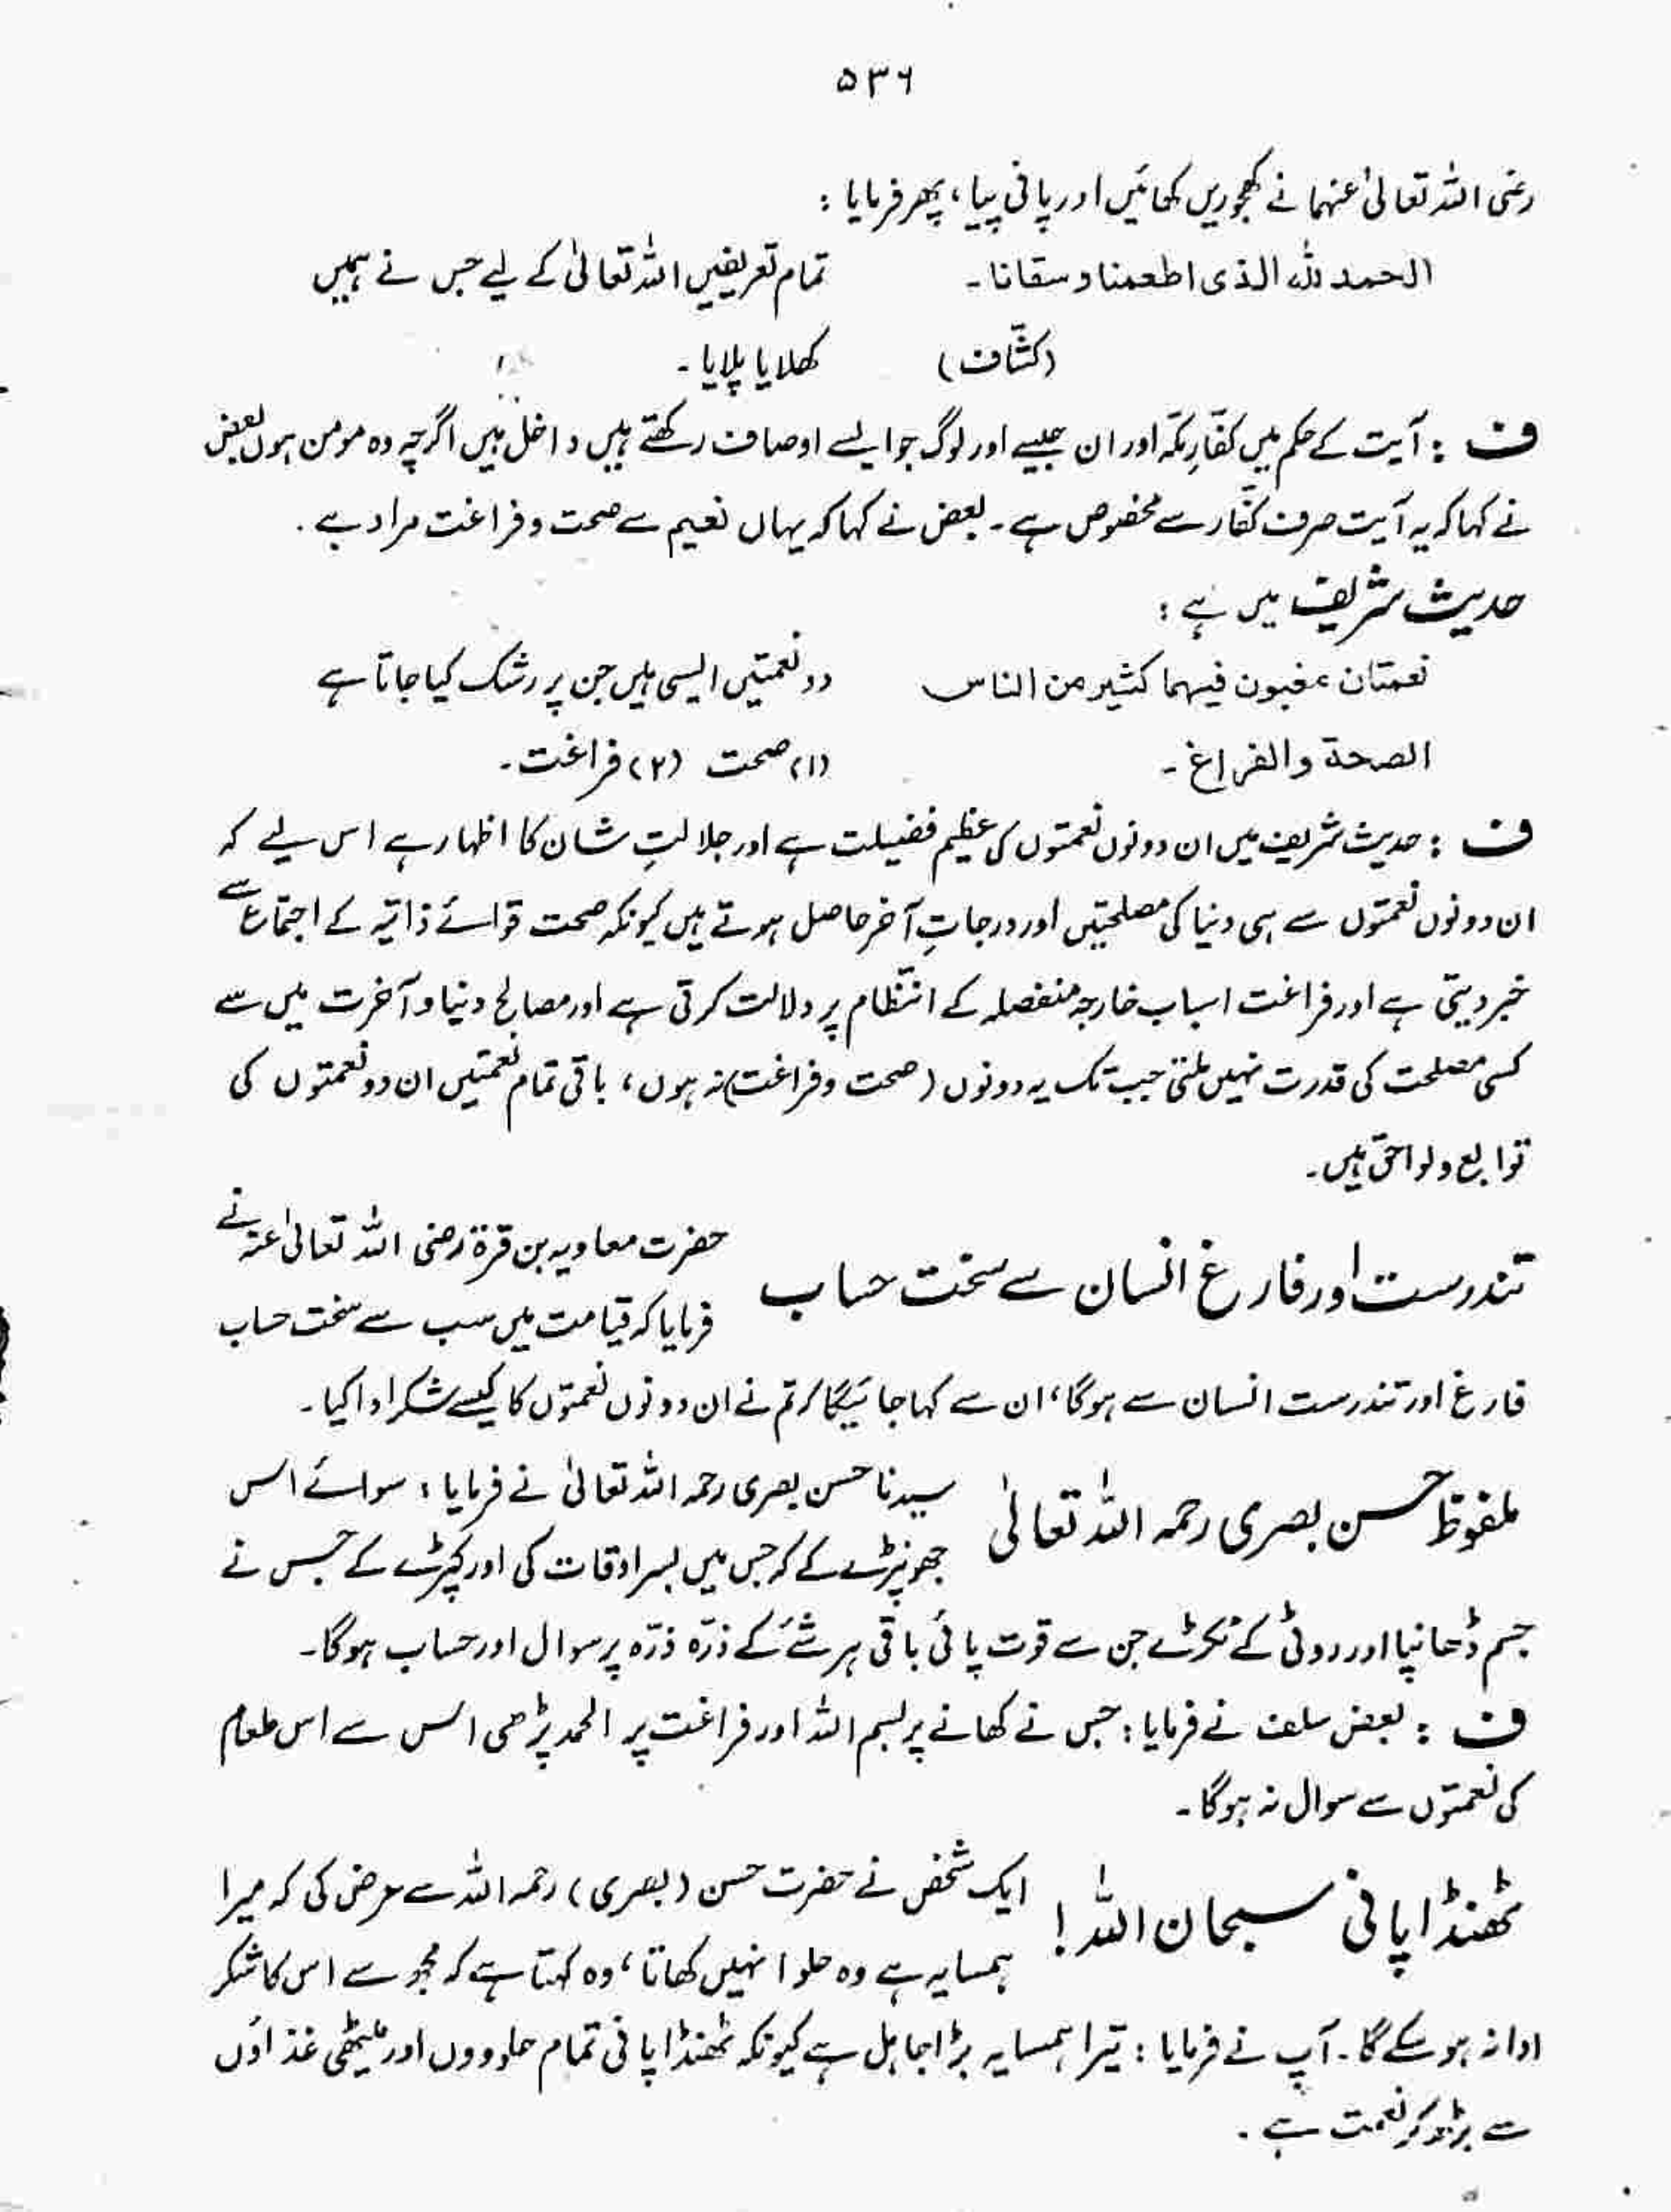 ۵۳۶
رضی اللہ تعالیٰ عنہما نے کھجوریں کھائیں اور پانی پیا، پھر فرمایا :
الحمد للہ الذی اطعمنا و سقانا۔ تمام تعریفیں اللہ تعالیٰ کے لیے جس نے ہمیں
(کشّاف) کھلایا پلایا۔
ف : آیت کے حکم میں کفّارِ مکّہ اور ان جیسے اور لوگ جو ایسے اوصاف رکھتے ہیں داخل ہیں اگرچہ وہ مومن ہوں بعض
نے کہا کہ یہ آیت صرف کفّار سے مخصوص ہے۔ بعض نے کہا کہ یہاں نعیم سے صحت و فراغت مراد ہے۔
حدیث شریف میں ہے :
نعمتان مغبون فیہما کثیر من الناس دو نعمتیں ایسی ہیں جن پر رشک کیا جاتا ہے
الصحة والفراغ۔ (۱) صحت (۲) فراغت۔
ف : حدیث شریف میں ان دونوں نعمتوں کی عظیم فضیلت ہے اور جلالتِ شان کا اظہار ہے اس لیے کہ
ان دونوں نعمتوں سے ہی دنیا کی مصلحتیں اور درجاتِ آخر حاصل ہوتے ہیں کیونکہ صحت قوائے ذاتیہ کے اجتماع سے
خبر دیتی ہے اور فراغت اسباب خارجہ منفصلہ کے انتظام پر دلالت کرتی ہے اور مصالح دنیا و آخرت میں سے
کسی مصلحت کی قدرت نہیں ملتی جب تک یہ دونوں (صحت و فراغت) نہ ہوں، باقی تمام نعمتیں ان دو نعمتوں کی
توابع و لواحق ہیں۔
تندرست اور فارغ انسان سے سخت حساب حضرت معاویہ بن قرة رضی اللہ تعالیٰ عنہ نے
فرمایا کہ قیامت میں سب سے سخت حساب
فارغ اور تندرست انسان سے ہوگا، ان سے کہا جائیگا کہ تم نے ان دونوں نعمتوں کا کیسے شکر ادا کیا۔
ملفوظ حسن بصری رحمہ اللہ تعالیٰ سیدنا حسن بصری رحمہ اللہ تعالیٰ نے فرمایا : سوائے اس
جھونپڑے کے کہ جس میں بسر اوقات کی اور کپڑے کے جس نے
جسم ڈھانپا اور روٹی کے ٹکڑے جن سے قوت پائی باقی ہر شئے کے ذرّہ ذرّہ پر سوال اور حساب ہوگا۔
ف : بعض سلف نے فرمایا : جس نے کھانے پر بسم اللہ اور فراغت پر الحمد پڑھی اس سے اس طعام
کی نعمتوں سے سوال نہ ہوگا۔
ٹھنڈا پانی سبحان اللہ! ایک شخص نے حضرت حسن (بصری) رحمہ اللہ سے عرض کی کہ میرا
ہمسایہ ہے وہ حلوا نہیں کھاتا، وہ کہتا ہے کہ مجھ سے اس کا شکر
ادا نہ ہو سکے گا۔ آپ نے فرمایا : تیرا ہمسایہ بڑا جاہل ہے کیونکہ ٹھنڈا پانی تمام حلووں اور میٹھی غذاؤں
سے بڑھ کر نعمت ہے۔